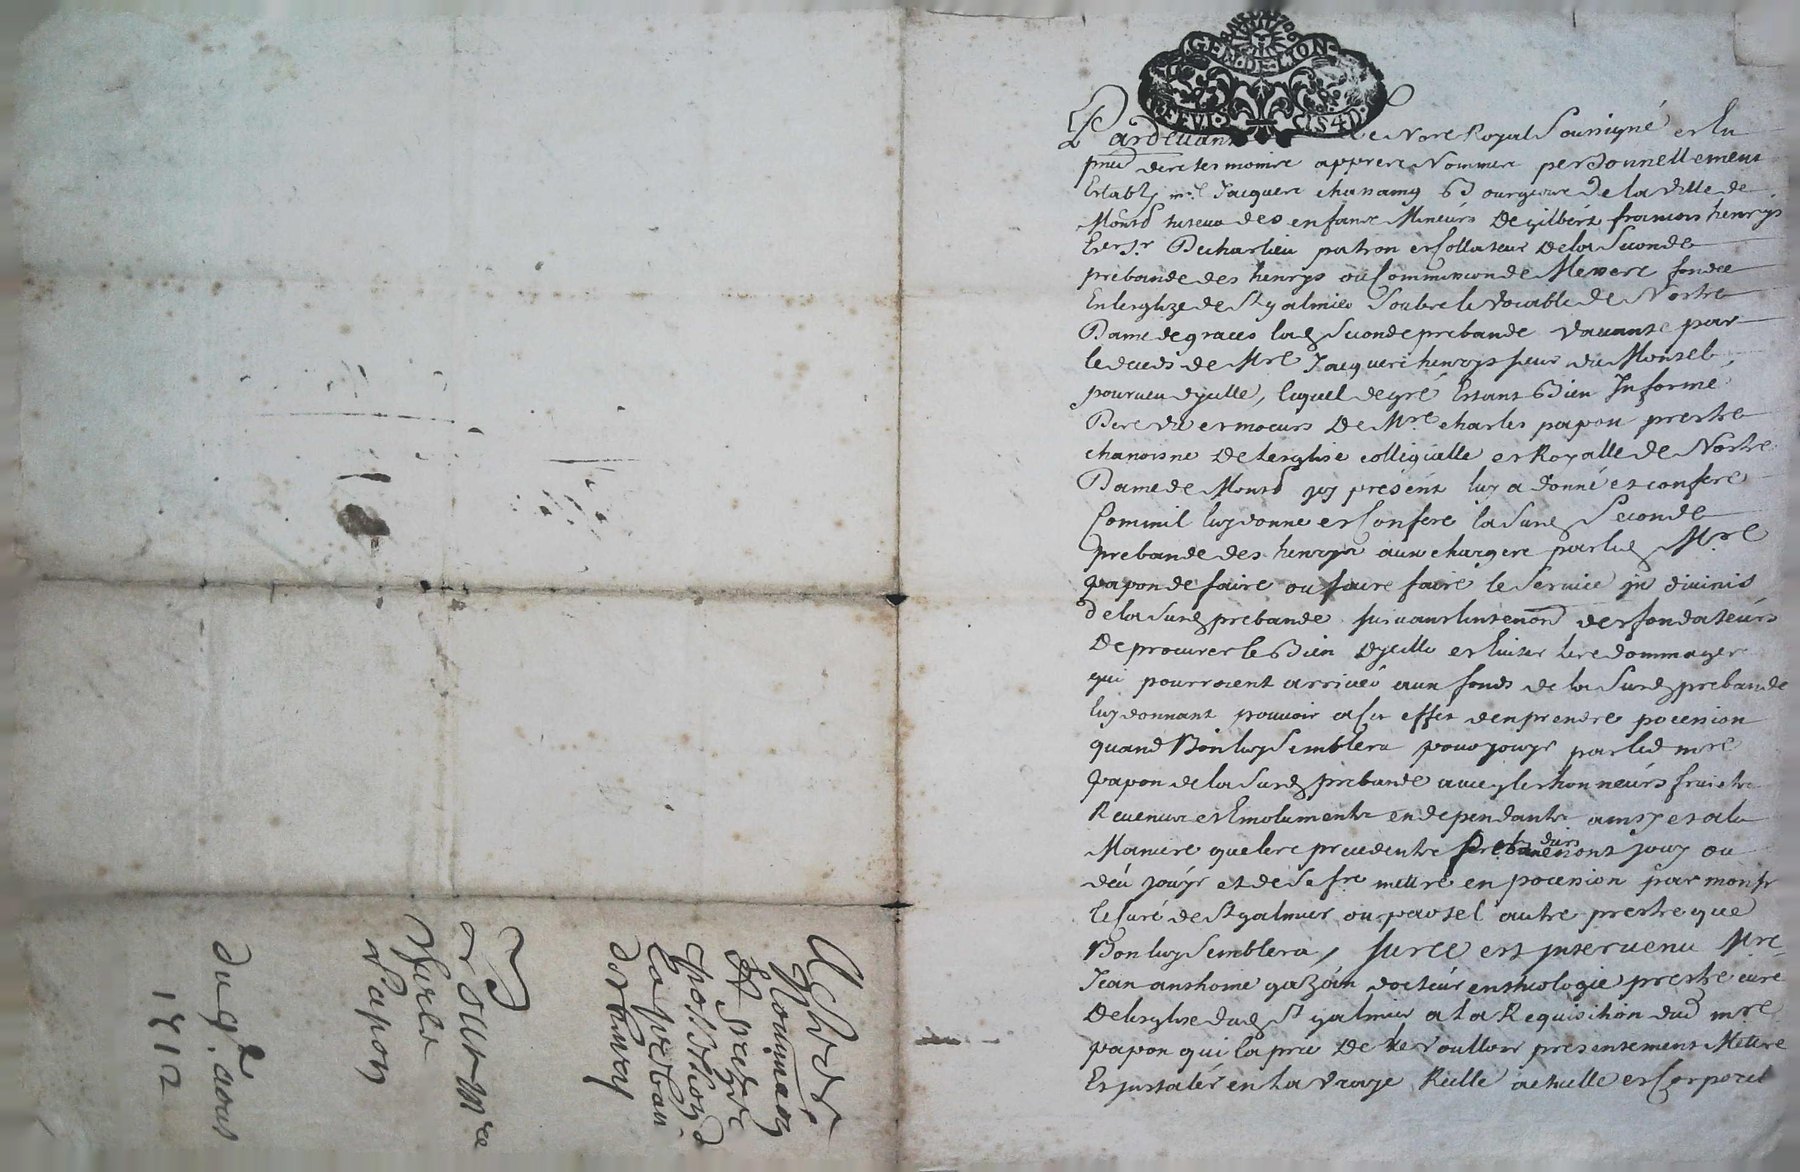 GEN·DE·LION
Pardevant le Notre Royal Soussigné et En
pnce des tesmoins appres Nommes personnellement
Estably mre Jacques chassaing Bourgeois de la ville de
Montd tuteur des enfans Mineurs De gilbert francois henrys
Escr Sr Decharlieu patron et Collateur De la Seconde
prebande des henrys ou Commission de Messes fondée
En lesglize de St galmier Soubs le vocable de Nostre
Dame de graces lade Seconde prebande vacante par
le deceds de Mre Jacques henrys sieur du Montel
pourveu dycelle, lequel de gré Estant Bien Informé
Des vie et moeurs De Mre charles papon prestre
chanoisne De lesglise collegialle et Royalle de Nostre
Dame de Montd icy présent luy a donné et conferé
Comme il luy donne et Confere la Susd Seconde
prebande des henrys aux charges par led Mre
papon de faire ou faire faire le Service in divinis
de la Susd prebande suivant lintenon des fondateurs
De procurer le Bien Dycelle et Eviter les dommages
qui pourroient arriver aux fonds de la Susd prebande
luy donnant pouvoir a cet effet den prendre pocession
quand Bon luy Semblera pour jouyr par led mre
papon de la Susd prebande avec les honneurs fruicts
Revenus et Emoluments en dependants ainsy et a la
Maniere que les precedents prebandiers ont jouy ou
deu jouyr et de se fre mettre en pocession par monsr
le Curé de St galmier ou par tel autre prestre que
Bon luy Semblera, sur ce est intervenu Mre
Jean anthoine gazain docteur en theologie prestre curé
De lesglise dud St galmier a la Requisition dud mre
papon qui la prié De le voulloir presentement Mettre
Et jnstaler en la vraye Réelle actuelle et Corporel
Acte de
Nomination
Et prize de
possession de
la prebande
des henrys
pour Mre
Charles
Papon
du 9e aout
1712